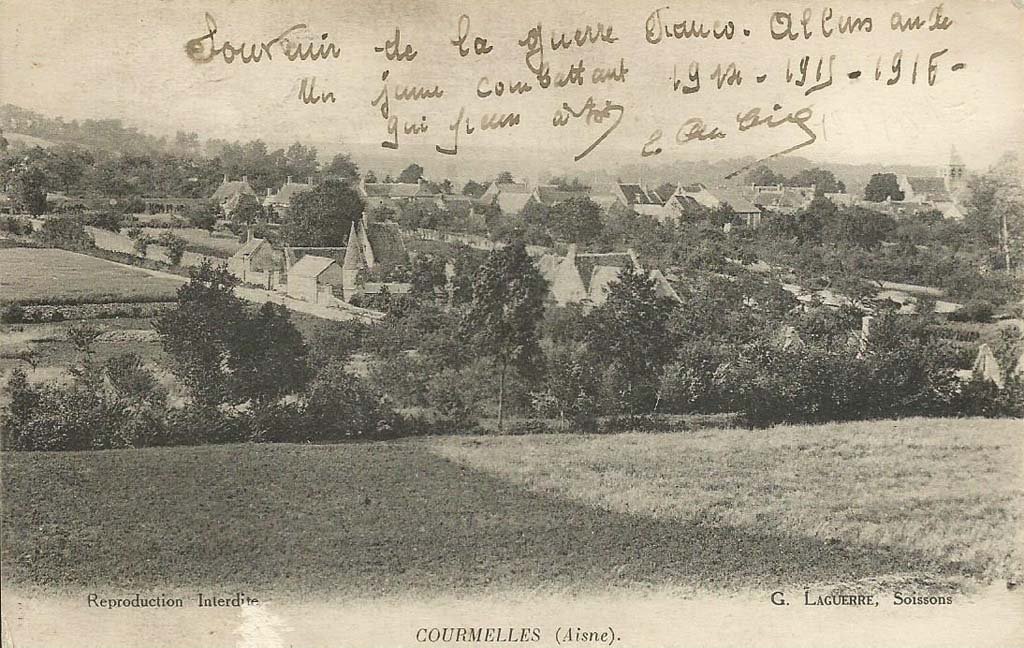 Souvenir de la guerre Franco-Allemande
Un jeune combattant 1914-1915-1916-
qui
Reproduction Interdite
G. LAGUERRE, Soissons
COURMELLES (Aisne).